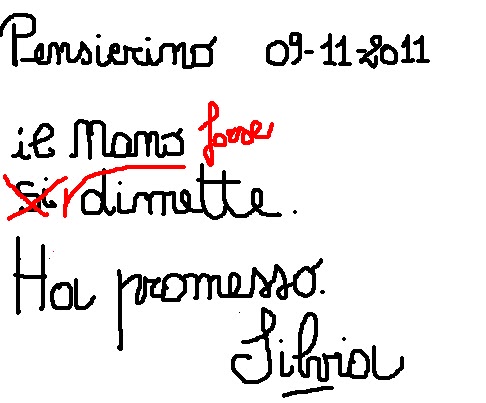 Pensierino 09-11-2011
il Nano forse
si dimette.
Ha promesso.
Silvia